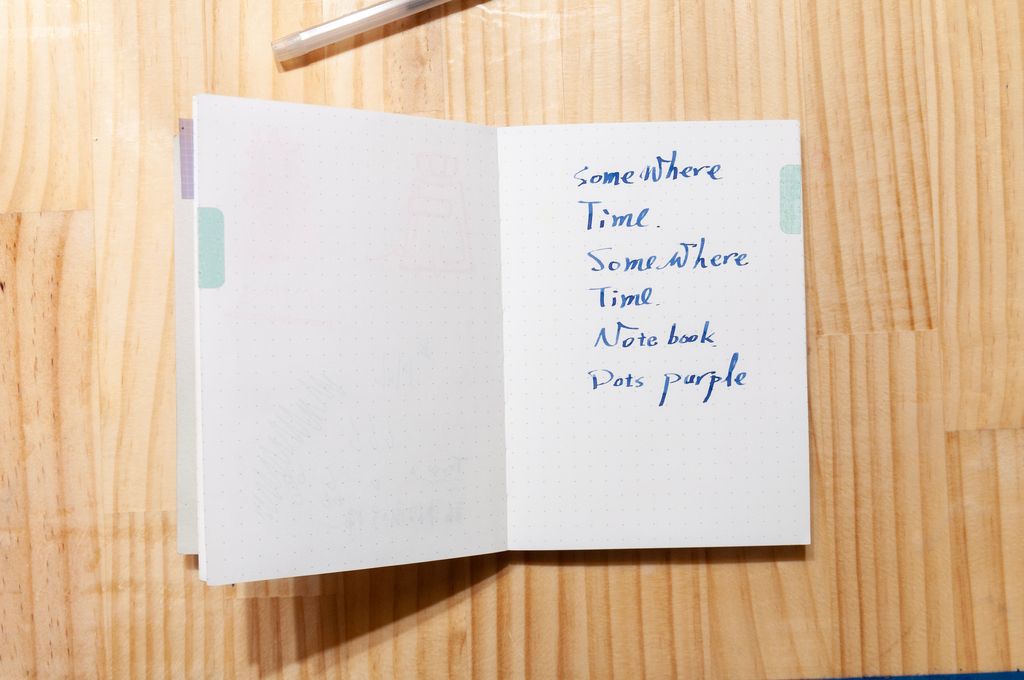 SomeWhere
Time.
SomeWhere
Time.
Note book
Dots purple